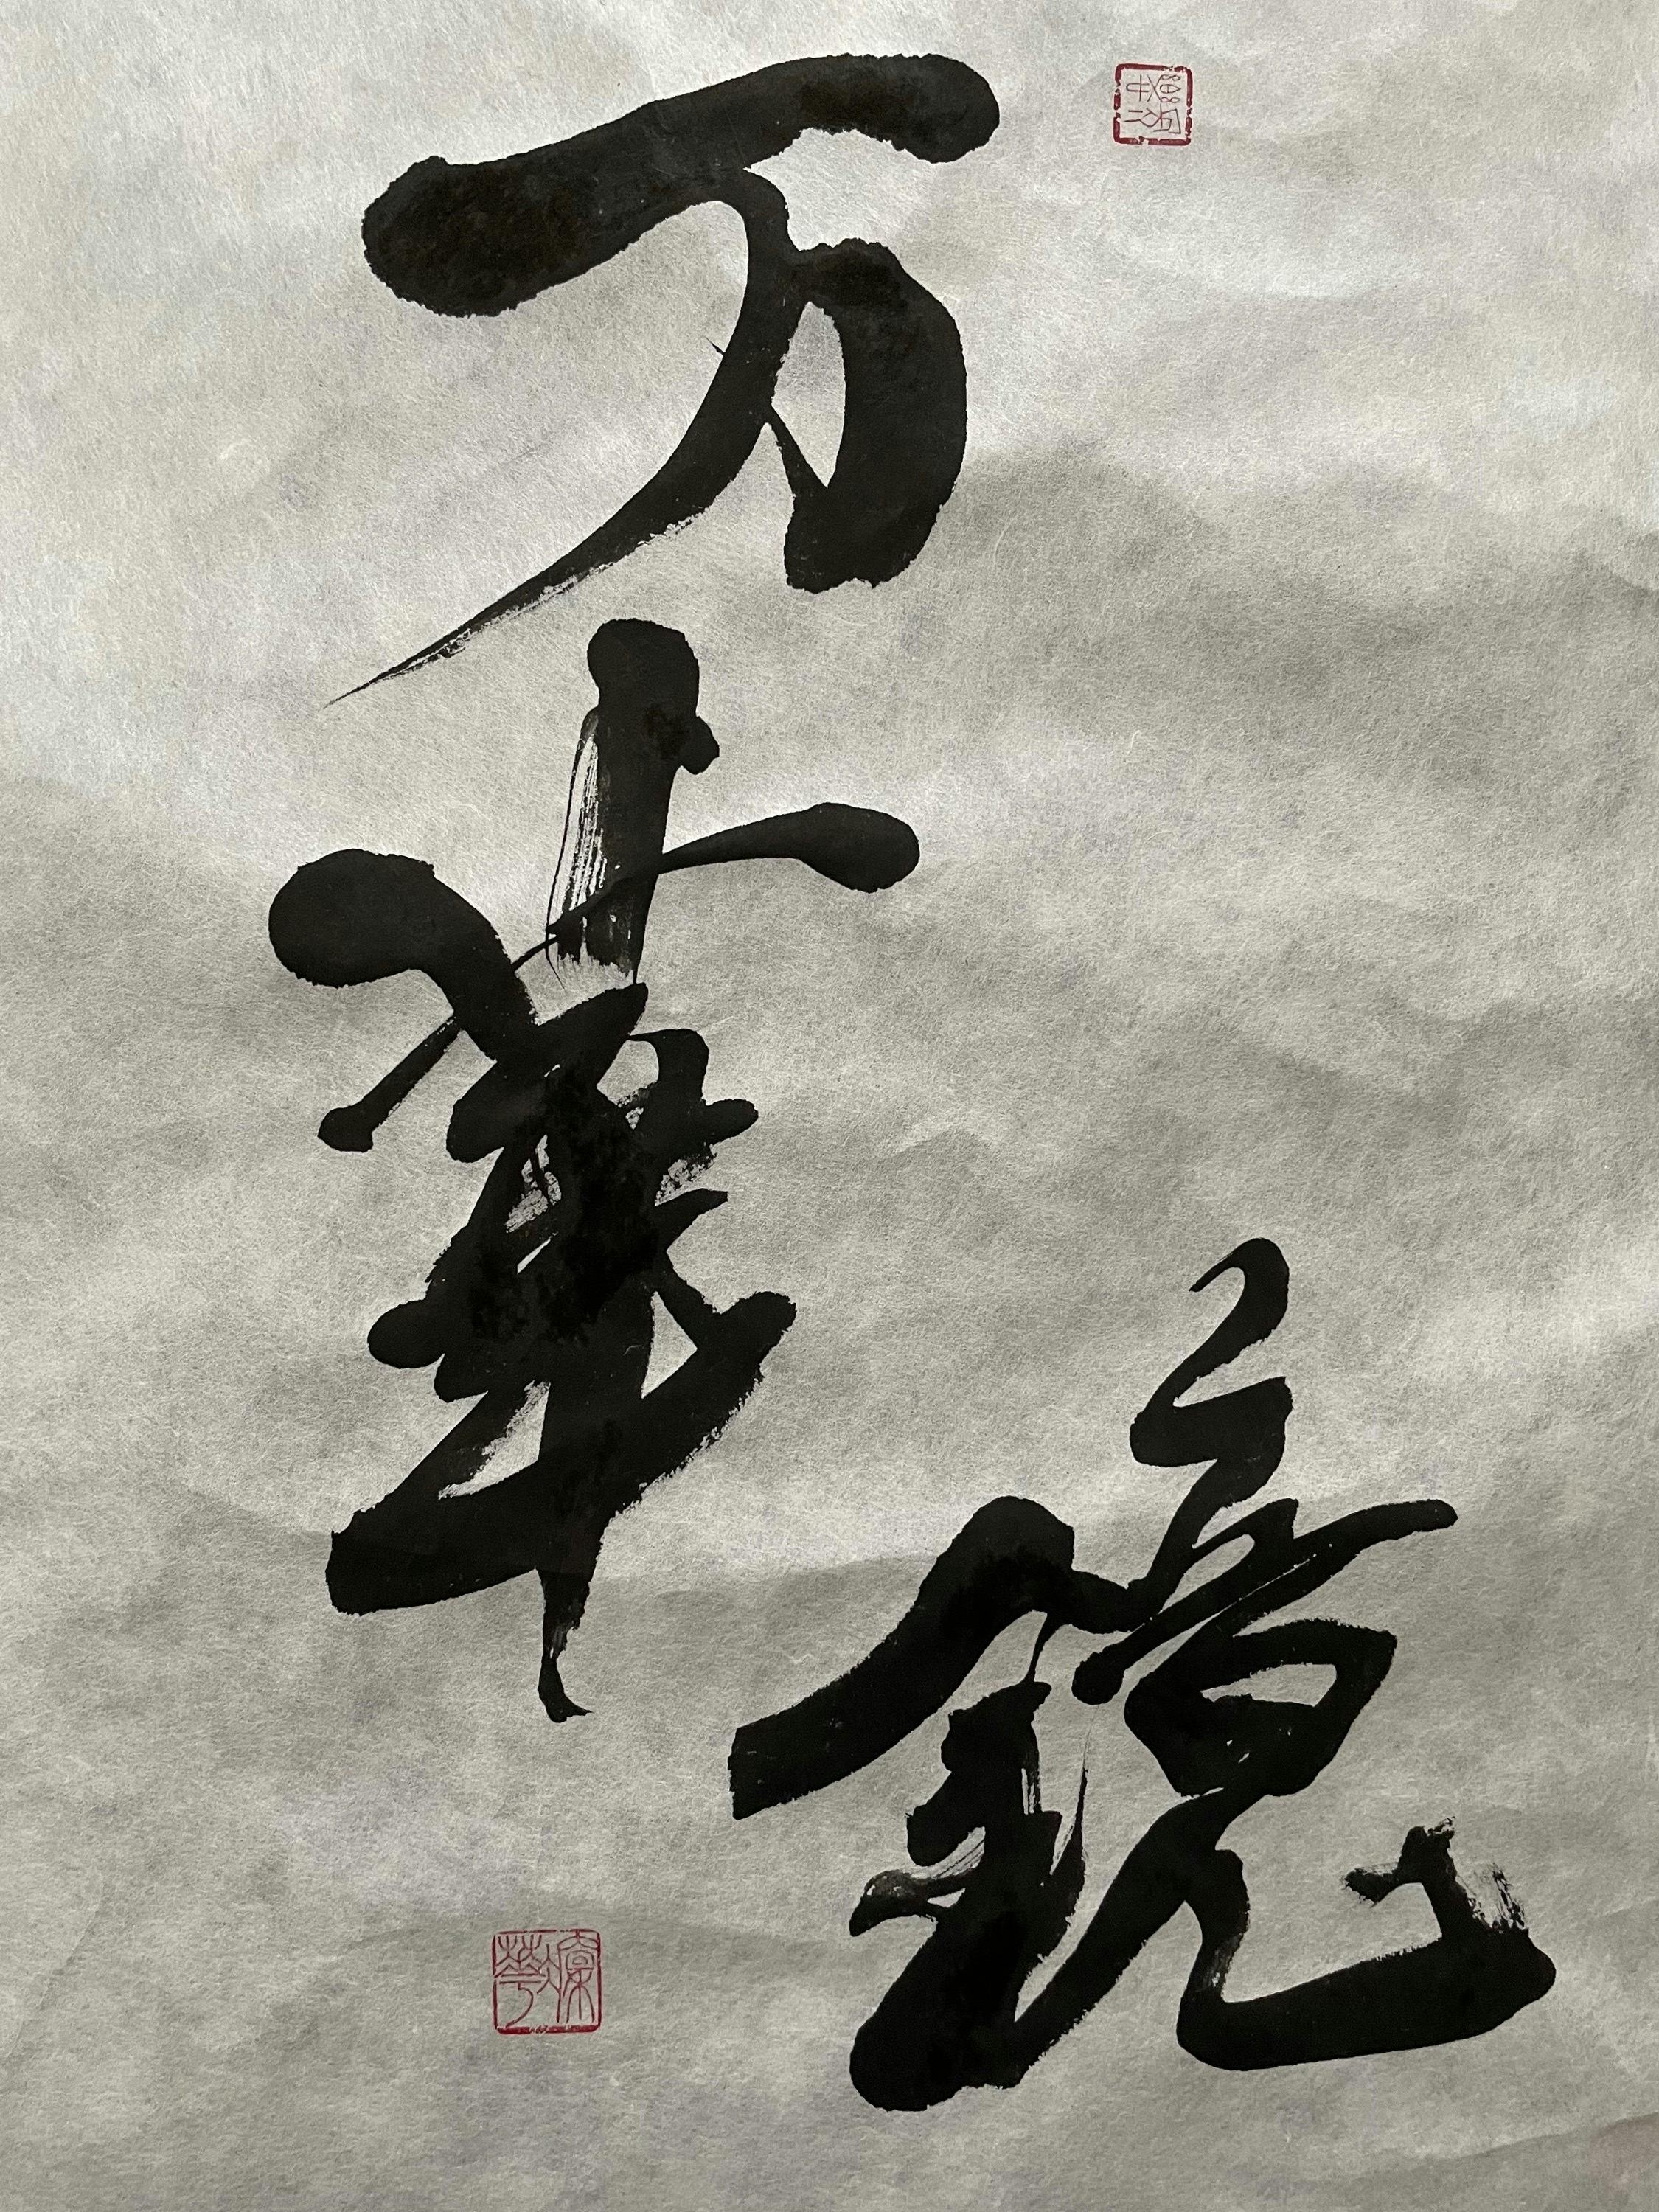 万華
鏡